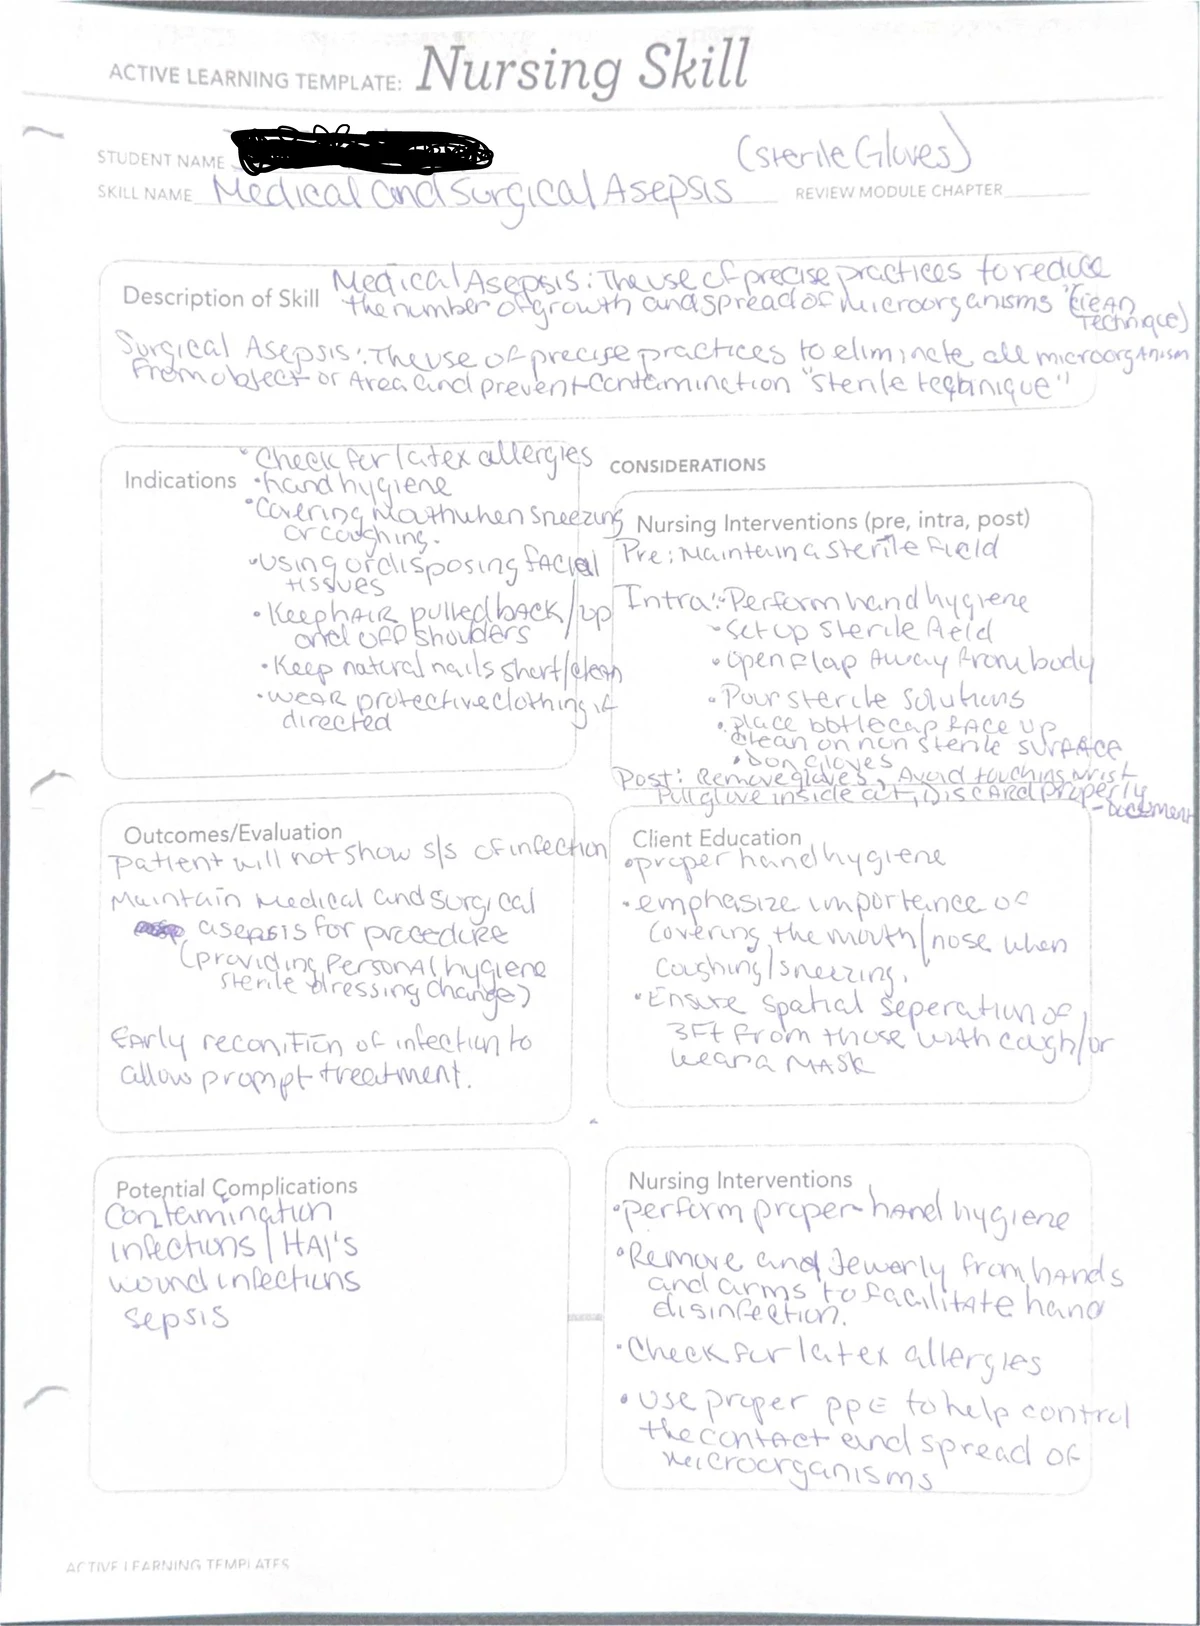 ACTIVE LEARNING TEMPLATE: Nursing Skill
STUDENT NAME
(sterile Gloves)
SKILL NAME Medical and Surgical Asepsis REVIEW MODULE CHAPTER
Description of Skill
Medical Asepsis: The use of precise practices to reduce
the number of growth and spread of microorganisms "(clean
Technique)
Surgical Asepsis: The use of precise practices to eliminate all microorganism
From object or Area and prevent contamination "sterile technique"
Indications
• Check for latex allergies
• hand hygiene
• Covering mouth when sneezing
or coughing.
• using or disposing facial
tissues
• Keep hair pulled back/up
and off shoulders
• Keep natural nails short/clean
• wear protective clothing if
directed
CONSIDERATIONS
Nursing Interventions (pre, intra, post)
Pre: Maintain a sterile field
Intra: • Perform hand hygiene
• Set up sterile field
• open flap Away from body
• Pour sterile solutions
• place bottle cap face up
clean on non sterile surface
• Don Gloves
Post: Remove gloves, Avoid touching wrist
Pull glove inside out, Discard properly
- Document
Outcomes/Evaluation
patient will not show s/s of infection
Maintain medical and surgical
asepsis for procedure
(providing personal hygiene
sterile dressing change)
Early reconition of infection to
allow prompt treatment.
Client Education
• proper hand hygiene
• emphasize importance of
covering the mouth/nose when
coughing/sneezing.
• Ensure spatial seperation of
3Ft from those with cough/or
wear a mask
Potential Complications
Contamination
infections/HAI's
wound infections
sepsis
Nursing Interventions
• perform proper hand hygiene
• Remove and Jewerly from hands
and arms to facilitate hand
disinfection.
• Check for latex allergies
• use proper PPE to help control
the contact and spread of
microorganisms
ACTIVE LEARNING TEMPLATES